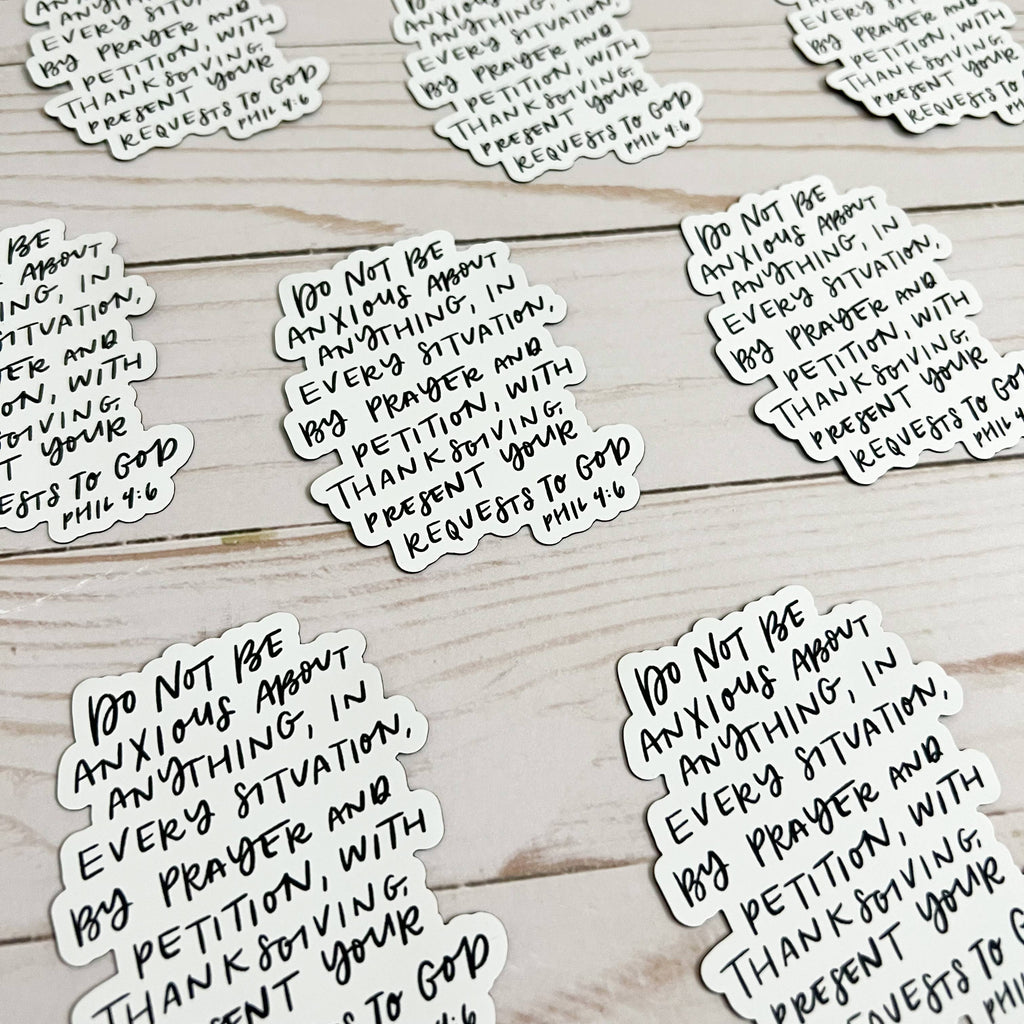 ANYTHING, IN
EVERY SITUATION,
BY PRAYER AND
PETITION, WITH
THANKSGIVING,
PRESENT YOUR
REQUESTS TO GOD
PHIL 4:6
ANYTHING, IN
EVERY SITUATION,
BY PRAYER AND
PETITION, WITH
THANKSGIVING,
PRESENT YOUR
REQUESTS TO GOD
PHIL 4:6
EVERY SITUATION,
BY PRAYER AND
PETITION, WITH
THANKSGIVING,
PRESENT YOUR
REQUESTS TO
PHIL 4:6
BE
ABOUT
IN
SITUATION,
AND
WITH
YOUR
TO GOD
PHIL 4:6
DO NOT BE
ANXIOUS ABOUT
ANYTHING, IN
EVERY SITUATION,
BY PRAYER AND
PETITION, WITH
THANKSGIVING,
PRESENT YOUR
REQUESTS TO GOD
PHIL 4:6
DO NOT BE
ANXIOUS ABOUT
ANYTHING, IN
EVERY SITUATION,
BY PRAYER AND
PETITION, WITH
THANKSGIVING,
PRESENT YOUR
REQUESTS TO GOD
PHIL 4:6
DO NOT BE
ANXIOUS ABOUT
ANYTHING, IN
EVERY SITUATION,
BY PRAYER AND
PETITION, WITH
THANKSGIVING,
PRESENT YOUR
TO GOD
4:6
DO NOT BE
ANXIOUS ABOUT
ANYTHING, IN
EVERY SITUATION,
BY PRAYER AND
PETITION, WITH
THANKSGIVING,
PRESENT YOUR
REQUESTS TO
PHIL